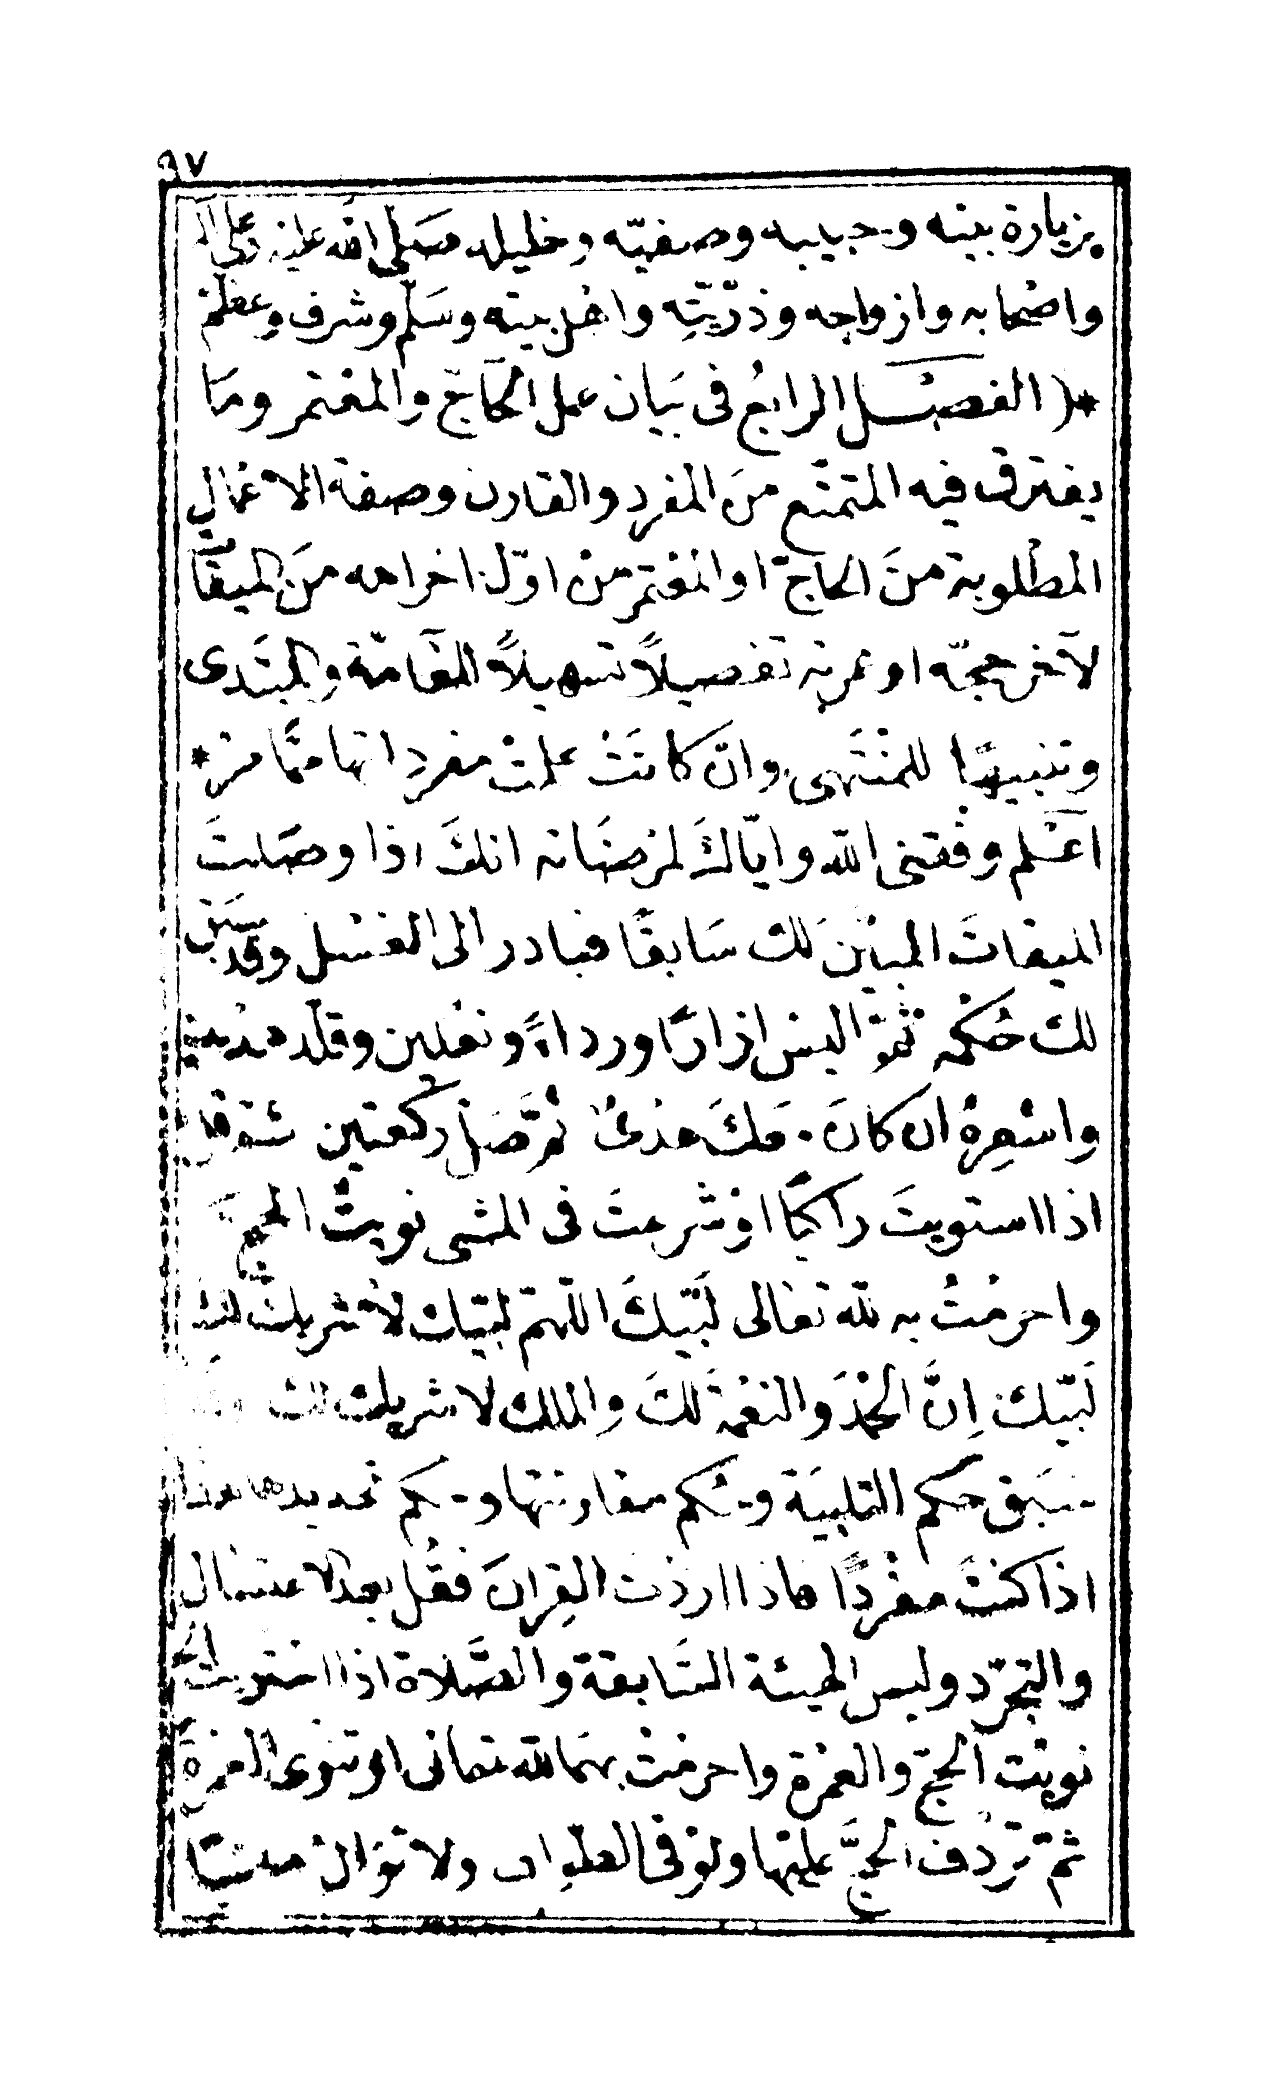 ٩٧
بزيارة نبيّه وحبيبه وصفيّه وخليله صَلّى الله عليه وعلى آله
واصْحابه وازواجه وذرّيّتِه واهْل بيته وسَلّم وشرف وعظّم
*( الفصْل الرابعُ فى بَيان عمل الحَاجّ والمعْتمر ومَا
يفترق فيه المتمتّع منَ المفرد والقارن وصفة الاعْمال
المطْلوبة منَ الحَاجّ او المعْتمر منْ اوّل احرامه منَ الميقَات
لآخر حجّه او عمرته تفصيلاً تسهيلاً للعَامّة والمبتَدى
وتنبيهًا للمنْتَهى وانْ كانَتْ علمتْ مفرداتها ممّا مرّ *
اعْلم وفّقنى الله وايّاكَ لمرضَاته انكَ اذا وصَلتَ
الميقاتَ المبيّنَ لك سَابقًا فبادر الى الغسْل وقد سَبَق
لكَ حُكمه ثمّ البسْ ازارًا ورداءً ونعْلين وقلّد هدْيك
واشْعِرهُ ان كانَ مَعكَ هدْىٌ ثمّ صَلّ ركعتين
اذا استويتَ راكبًا اوْ شرعتَ فى المشى نويتُ الحجّ
واحرمْتُ به لله تعَالى لَبّيكَ اللّهمّ لبّيك لاَ شريكَ لكَ
لَبّيك اِنَّ الحمْدَ والنعْمةَ لكَ والملك لا شريك لك
سَبَق حكم التلبيَة وحُكم مقارنتها وحكم تجديدها هذا
اذا كنْتَ مفْردًا فاذا اردْت القِرانَ فقُل بعد الاغتسَال
والتجرّد ولبس الهيئة السَّابقة والصَّلاة اذا استويت
نويْت الحجّ والعمْرة واحرمْت بهمَا لله تعَالى او تنوى العمْرةَ
ثمّ تردْف الحجَّ عليْها ولوْ فى الطوَاف ولا تزَال